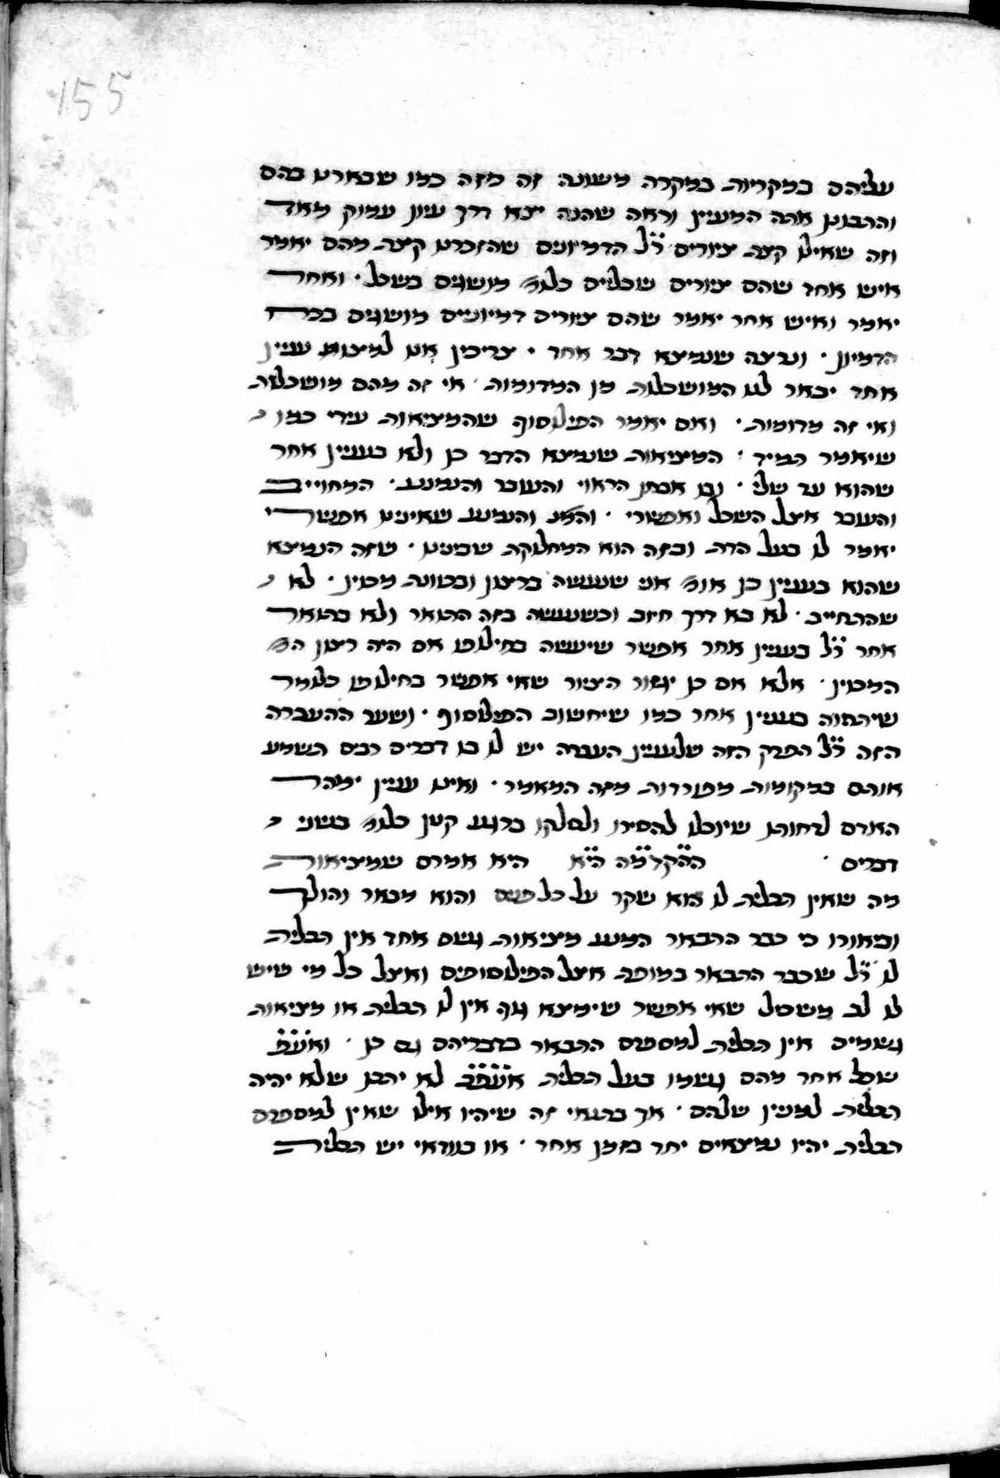 155
עליהם במקריות במקרה משונה זה מזה כמו שבארנו בהם
והתבונן אתה המעיין וראה שהנה יצא דרך עיון עמוק מאד
וזה שאילו קצת ציורים ר̈ל הדמיונים שהזכרנו קצת מהם יאמר
איש אחד שהם ציורים שכליים כלומ' מושגים בשכל · ואחר
יאמר ואיש אחר יאמר שהם ציורים דמיוניים מושגים בכח
הדמיון · ונרצה שנמצא דבר אחד · צריכין אנו למצות עניין
אחד יבאר לנו המושכלות מן המדומות · אי זה מהם מושכלות
ואי זה מדומות · ואם יאמר הפילוסוף שהמציאות עידי כמו
שיאמר תמיד · המציאות שנמצא הדבר כן ולא בעניין אחר
שהוא עד שלי · ובו אבחן הראוי והעובר והנמנע · המחוייב
והעובר אצל השכל ואפשרי · והנמנע שאינינו אפשרי
יאמר לו בעל הדת ובזה הוא המחלוקת שבינינו · שזה הנמצא
שהוא בעניין כן אומ' אני שנעשה ברצון ובכוונת מכוין · לא
שהתחייב · לא בא דרך חיוב וכשנעשה בזה התואר ולא בתואר
אחר ר̈ל בעניין אחר אפשר שיעשה בחילופו אם היה רצון ה'
המכוין · אלא אם כן יגזור הציור שאי אפשר בחילופו כלומר
שיתהוה בעניין אחר כמו שיחשוב הפילוסוף · ושער ההעברה
הזה ר̈ל הפרק הזה שלעניין העברה יש לנו בו דברים רבים תשמע
אותם במקומות מפוזרות מזה המאמר · ואינו עניין ימהר
האדם לדחותו שיוכלו להסירו ולסלקו ברגע קטן כלומ' בשני
דברים · ההקדמה הי̈א היא אמרם שמציאות
מה שאין תכלית לו הוא שקר על כל פנים והוא מבואר והולך
וביאורו כי כבר התבאר המנע מציאות גשם אחד אין תכלית
לו ר̈ל שכבר התבאר במופת אצל הפילוסופים ואצל כל מי שיש
לו לב משכיל שאי אפשר שימצא גוף אין לו תכלית או מציאות
גשמים אין תכלית למספרם התבאר בדבריהם גם כן · ואעפ̈י
שכל אחד מהם גשמו בעל תכלית אעפ̈י לא יתכן שלא יהיה
תכלית למניין שלהם · אך בתנאי זה שיהיו אילו שאין למספרם
תכלית יהיו נמצאים יחד בזמן אחד · או בודאי יש תכלית